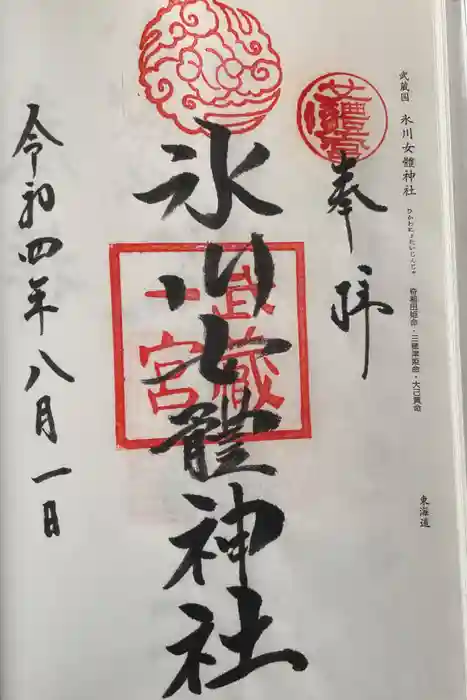 武蔵国 氷川女體神社 ひかわにょたいじんじゃ 奇稲田姫命・三穂津姫命・大己貴命
東海道
奉拝
氷川女體神社
武蔵
一宮
令和四年八月一日